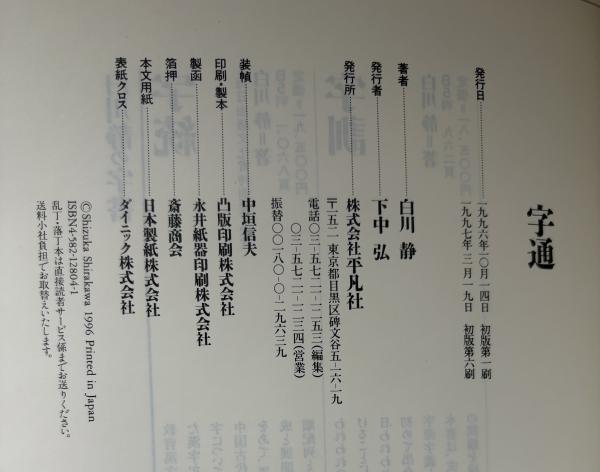 字通
発行日………一九九六年一〇月一四日 初版第一刷
一九九七年 三月一九日 初版第六刷
著者………白川 静
発行者………下中 弘
発行所………株式会社平凡社
〒一五二 東京都目黒区碑文谷五-一六-一九
電話〇三-五七二一-一二五三(編集)
〇三-五七二一-一二三四(営業)
振替〇〇一八〇-〇-二九六三九
装幀………中垣信夫
印刷・製本………凸版印刷株式会社
製函………永井紙器印刷株式会社
箔押………斎藤商会
本文用紙………日本製紙株式会社
表紙クロス………ダイニック株式会社
©Shizuka Shirakawa 1996 Printed in Japan
ISBN4-582-12804-1
乱丁・落丁本は直接読者サービス係までお送りください。
送料小社負担でお取替えいたします。